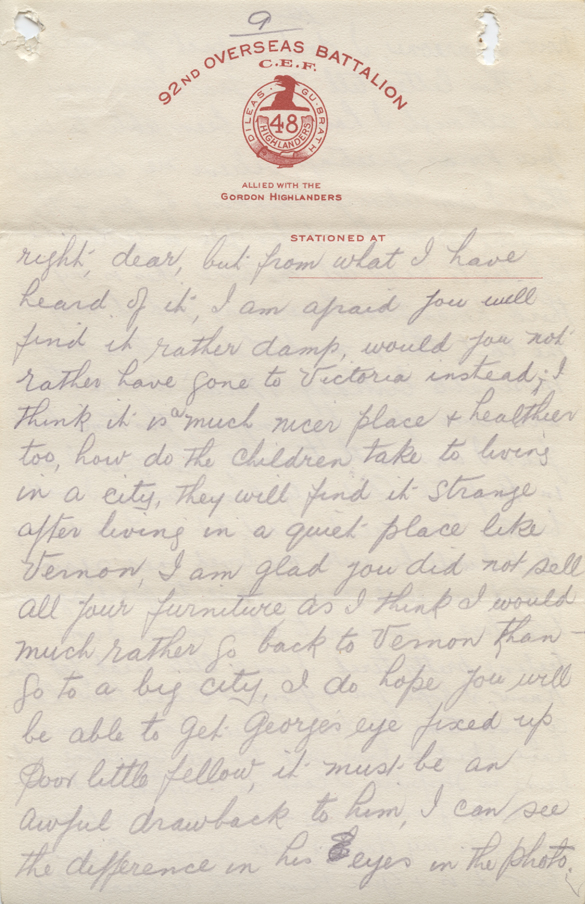 9
92ND OVERSEAS BATTALION
C.E.F.
DILEAS · GU · BRATH
48
HIGHLANDERS
ALLIED WITH THE
GORDON HIGHLANDERS
STATIONED AT
right, dear, but from what I have
heard of it, I am afraid you will
find it rather damp, would you not
rather have gone to Victoria instead, I
think it is a much nicer place & healthier
too, how do the children take to living
in a city, they will find it strange
after living in a quiet place like
Vernon, I am glad you did not sell
all your furniture as I think I would
much rather go back to Vernon than -
go to a big city, I do hope you will
be able to get George's eye fixed up
Poor little fellow, it must be an
awful drawback to him, I can see
the difference in his eyes in the photo,